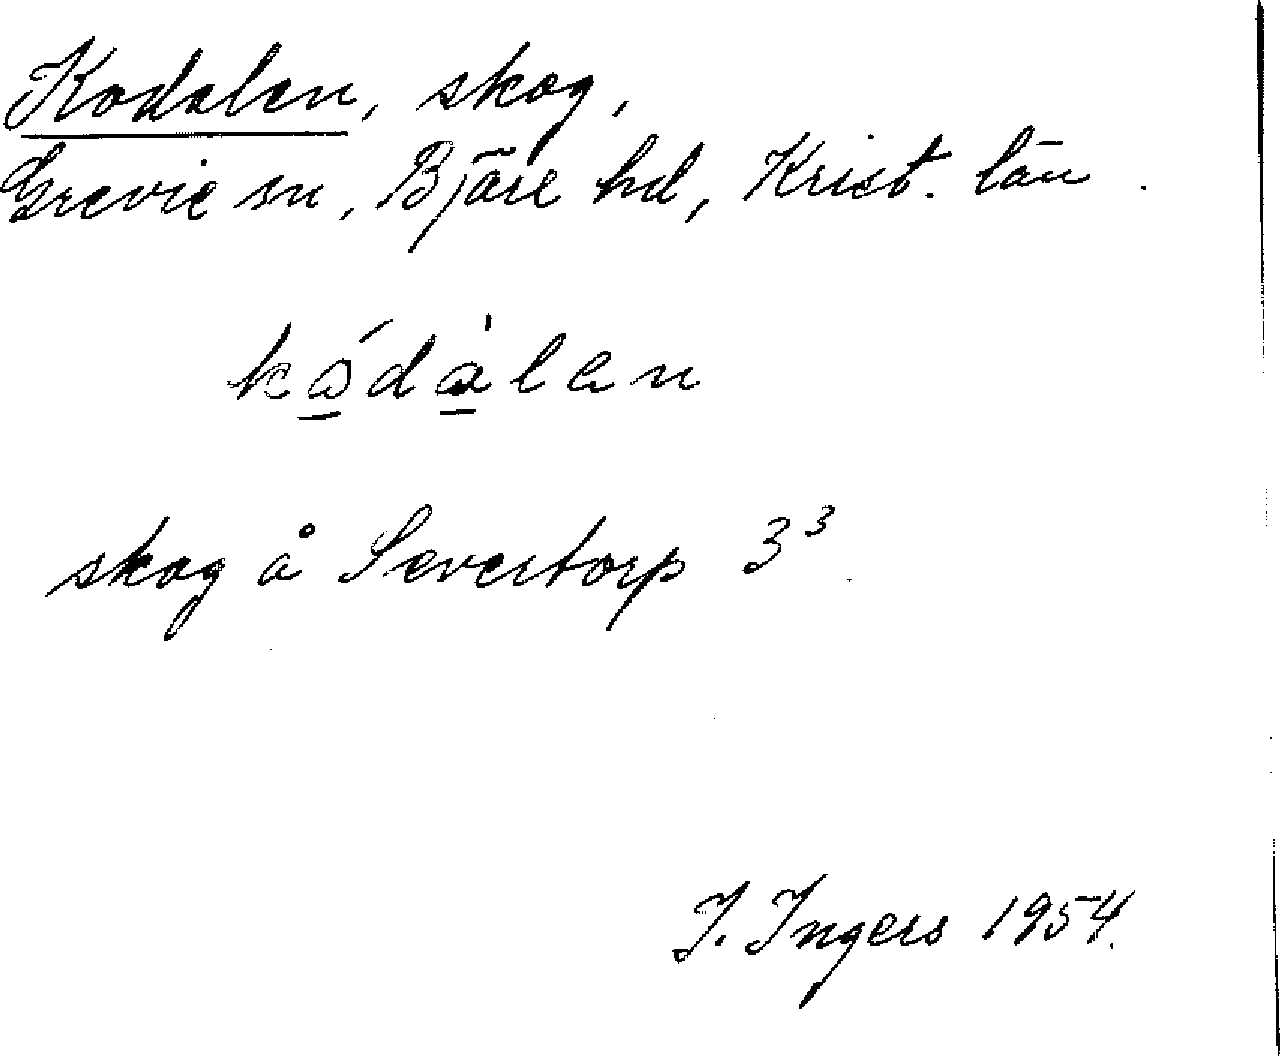 Kodalen, skog,
Grevie sn, Bjäre hd, Krist. län.
kó̠dà̠len
skog å Severtorp 3³
I. Ingers 1954.